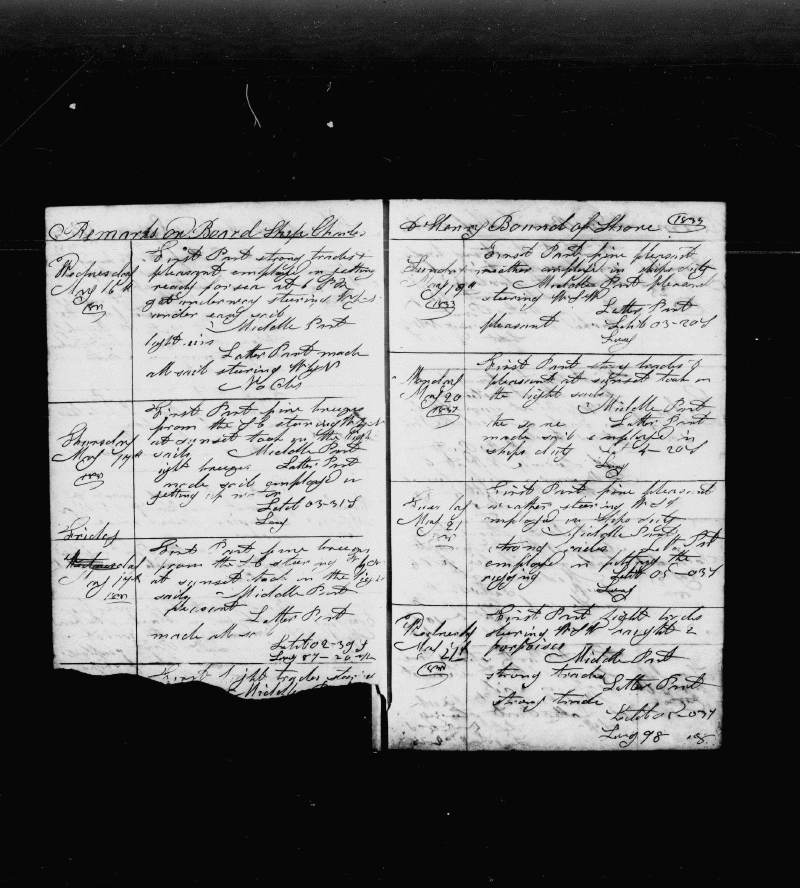 Remarks on Board Ship Charles
Wednesday
May 16th
First Part strong trades &
pleasant employed in getting
ready for sea at 6 PM
got underway steering W by S
under easy sail
Middle Part
light airs
Latter Part made
all sail steering W by N
No Obs
Thursday
May 17th
First Part fine breezes
from the S E steering W by N
at sunset took in the light
sails Middle Part
light breezes Latter Part
made sail employed in
getting up
Latit 03-31 S
Long
Friday
May 17th
First Part fine breezes
from the S E steering
at sunset took in the light
sails Middle Part
pleasant
Latter Part
made all sail
Latit 02-39 S
Long 87-20
First light trades steering
Middle Part
& Henry Bound of Shore 1833
Sunday
May 19th
1833
First Part fine pleasant
weather employed in ships duty
Middle Part pleasant
steering W S W
Latter Part
pleasant Latit 03-20 S
Long
Monday
May 20
First Part strong trades &
pleasant at sunset took in
the light sails
Middle Part
the same Latter Part
made sail employed in
ships duty Lat 4-20 S
Long
May 21
First Part fine pleasant
weather steering W S W
employed in ships duty
Middle Part
strong trades Latter Prt
employed in putting the
rigging Latit 05-03 S
Long
Wednesday
May
First Part light trades
steering W S W caught 2
porpoises
Middle Part
strong trades
Latter Part
strong trade
Latit
Long 98